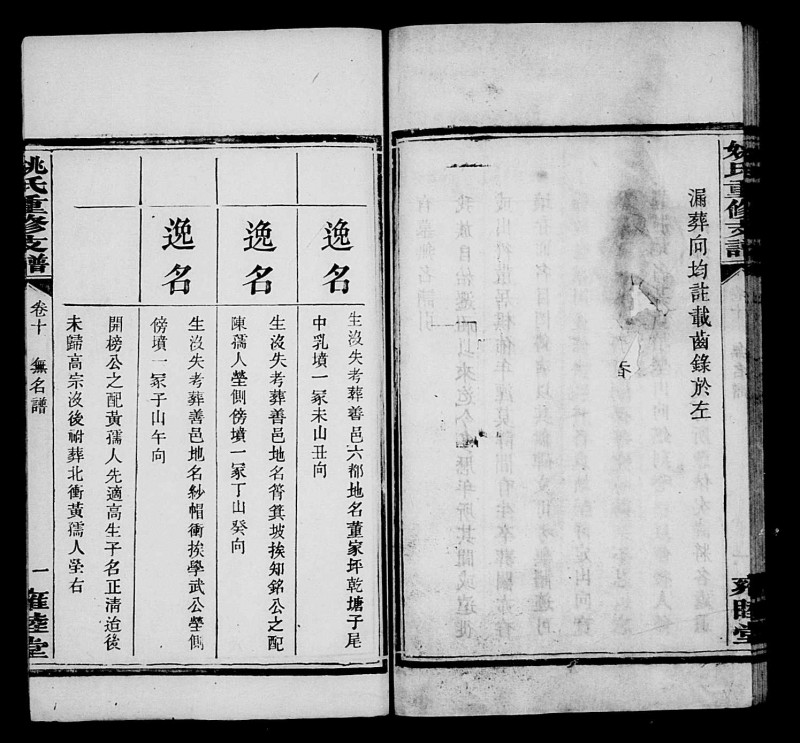 姚氏重修支譜
雍睦堂
漏葬向均註載齒錄於左
逸名
生沒失考葬善邑六都地名董家坪乾塘子尾
中乳墳一冢未山丑向
逸名
生沒失考葬善邑地名筲箕坡挨知銘公之配
陳孺人塋側傍墳一冢丁山癸向
逸名
生沒失考葬善邑地名紗帽衝挨學武公塋側
傍墳一冢子山午向
開榜公之配黃孺人先適高生子名正清迨後
未歸高宗沒後祔葬北衝黃孺人塋右
姚氏重修支譜
卷十 無名譜
一
雍睦堂